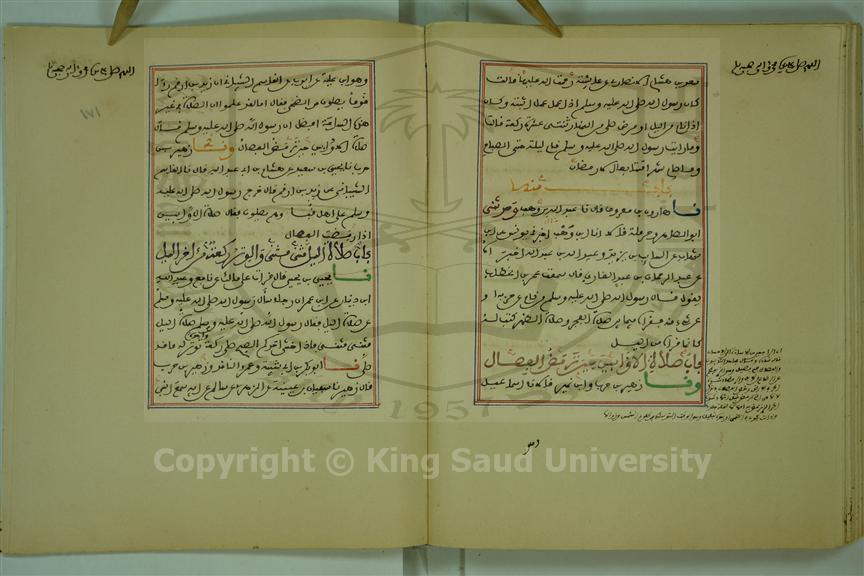 سعد بن هشام الانصاري عن عائشة رضي الله عنها قالت
كان رسول الله صلى الله عليه وسلم اذا عمل عملا اثبته وكان
اذا نام من الليل او مرض صلى من النهار ثنتي عشرة ركعة قالت
وما رايت رسول الله صلى الله عليه وسلم قام ليلة حتى الصباح
وما صام شهرا متتابعا الا رمضان
باب منه
نا هارون بن معروف قال نا عبد الله بن وهب وحدثني
ابو الطاهر وحرملة قالا انا ابن وهب اخبرني يونس عن ابن
شهاب عن السائب بن يزيد وعبيد الله بن عبد الله اخبراه
عن عبد الرحمان بن عبد القاري قال سمعت عمر بن الخطاب
يقول قال رسول الله صلى الله عليه وسلم من نام عن حزبه او
عن شيء منه فقراه فيما بين صلاة الفجر وصلاة الظهر كتب له
كانما قراه من الليل
باب صلاة الاوابين حين ترمض الفصال
ونا زهير بن حرب وابن نمير قالا نا اسماعيل
١٧١
وهو ابن علية عن ايوب عن القاسم الشيباني ان زيد بن ارقم راى
قوما يصلون من الضحى فقال اما لقد علموا ان الصلاة في غير
هذه الساعة افضل ان رسول الله صلى الله عليه وسلم قال
صلاة الاوابين حين ترمض الفصال ونا زهير بن
حرب نا يحيى بن سعيد عن هشام بن ابي عبد الله قال نا القاسم
الشيباني عن زيد بن ارقم قال خرج رسول الله صلى الله عليه
وسلم على اهل قبا وهم يصلون فقال صلاة الاوابين
اذا رمضت الفصال
باب صلاة الليل مثنى مثنى والوتر ركعة من اخر الليل
نا يحيى بن يحيى قال قرات على مالك عن نافع وعبد الله
ابن دينار عن ابن عمر ان رجلا سال رسول الله صلى الله عليه وسلم
عن صلاة الليل فقال رسول الله صلى الله عليه وسلم صلاة الليل
مثنى مثنى فاذا خشي احدكم الصبح صلى ركعة توتر له ما قد
صلى نا ابو بكر بن ابي شيبة وعمرو الناقد وزهير بن حرب
قال زهير نا سفيان بن عيينة عن الزهري عن سالم عن ابيه سمع النبي
Copyright © King Saud University
1957